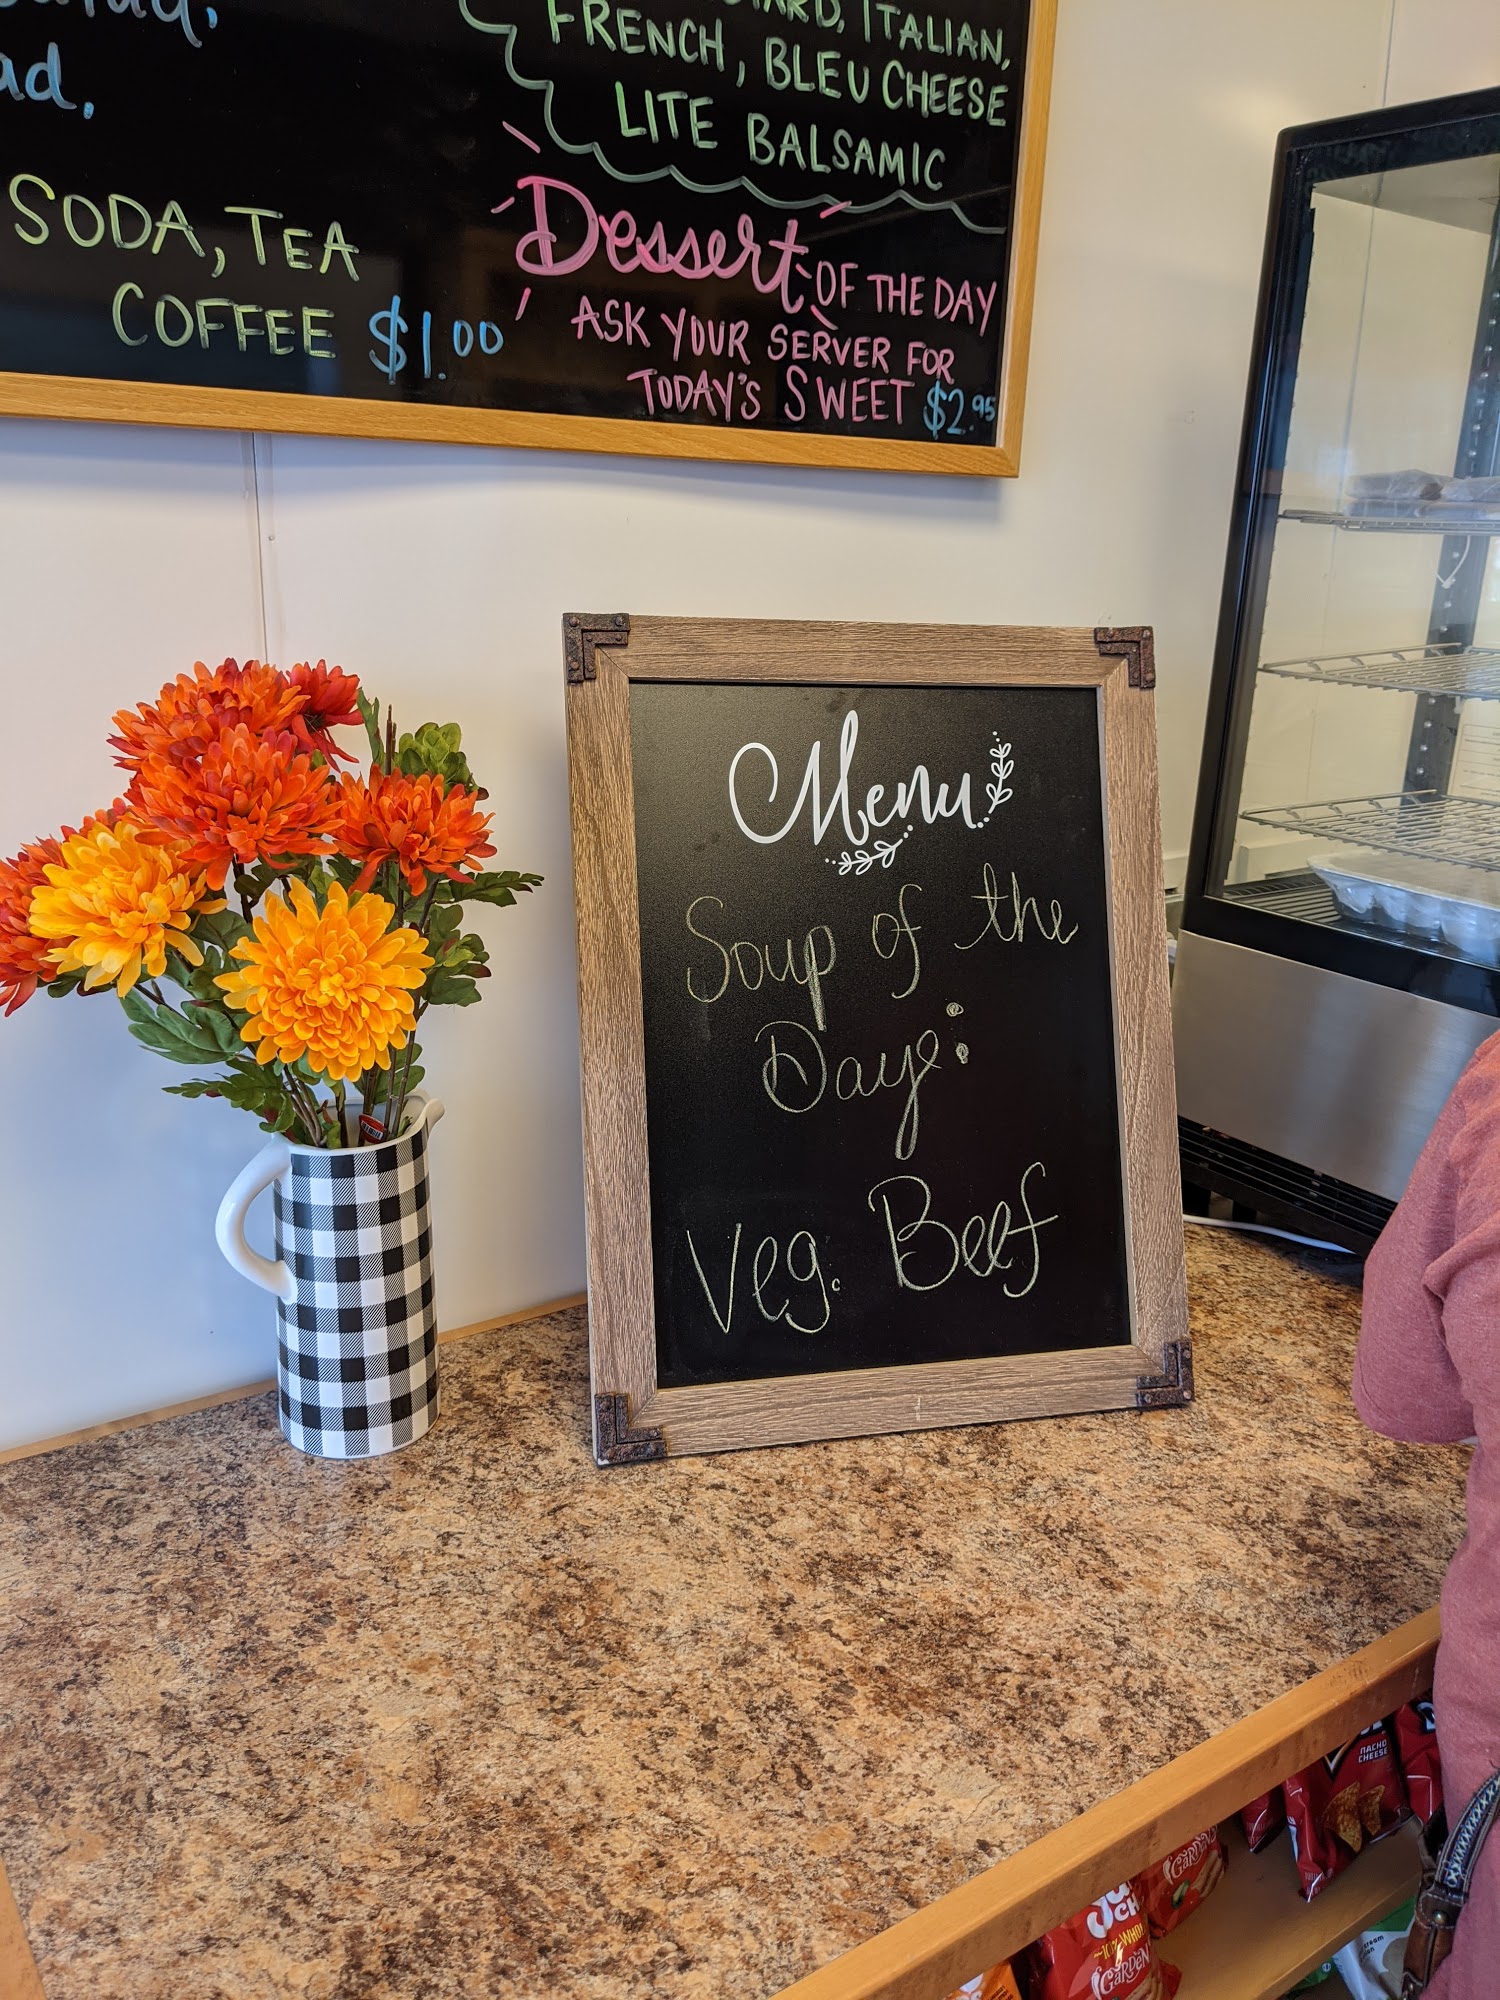 ITALIAN,
FRENCH, BLEU CHEESE
LITE BALSAMIC
SODA, TEA
COFFEE $1.00
Dessert OF THE DAY
ASK YOUR SERVER FOR
TODAY'S SWEET $2.95
Menu
Soup of the
Daye:
Veg. Beef
NACHO
CHEESE
GARDEN
SUN
CH
100% WHOL
GARDEN